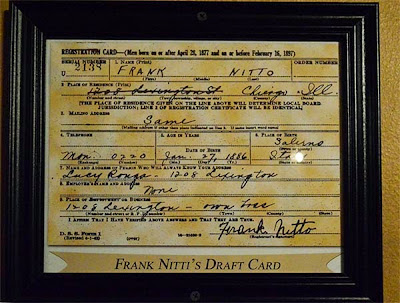 REGISTRATION CARD—(Men born on or after April 28, 1877 and on or before February 16, 1897)
SERIAL NUMBER 1. NAME (Print) ORDER NUMBER
U 2138 FRANK NITTO
(First) (Middle) (Last)
2. PLACE OF RESIDENCE (Print)
1208 Lexington St Chicago, Ill.
(Number and street) (Town, township, village, or city) (County) (State)
[THE PLACE OF RESIDENCE GIVEN ON THE LINE ABOVE WILL DETERMINE LOCAL BOARD
JURISDICTION; LINE 2 OF REGISTRATION CERTIFICATE WILL BE IDENTICAL]
3. MAILING ADDRESS
Same
[Mailing address if other than place indicated on line 2. If same insert word same]
4. TELEPHONE 5. AGE IN YEARS 6. PLACE OF BIRTH
Salerno
DATE OF BIRTH (Town or county)
Mon. 0220 Jan. 27, 1886
(Exchange) (Number) (Mo.) (Day) (Yr.) (State or country)
7. NAME AND ADDRESS OF PERSON WHO WILL ALWAYS KNOW YOUR ADDRESS
1208 Lexington
8. EMPLOYER'S NAME AND ADDRESS
None
9. PLACE OF EMPLOYMENT OR BUSINESS
1208 Lexington - own
(Number and street or R. F. D. number) (Town) (County) (State)
I AFFIRM THAT I HAVE VERIFIED ABOVE ANSWERS AND THAT THEY ARE TRUE.
D. S. S. Form 1
(Revised 4-1-42) (over) Frank Nitto
(Registrant's signature)
FRANK NITTI'S DRAFT CARD